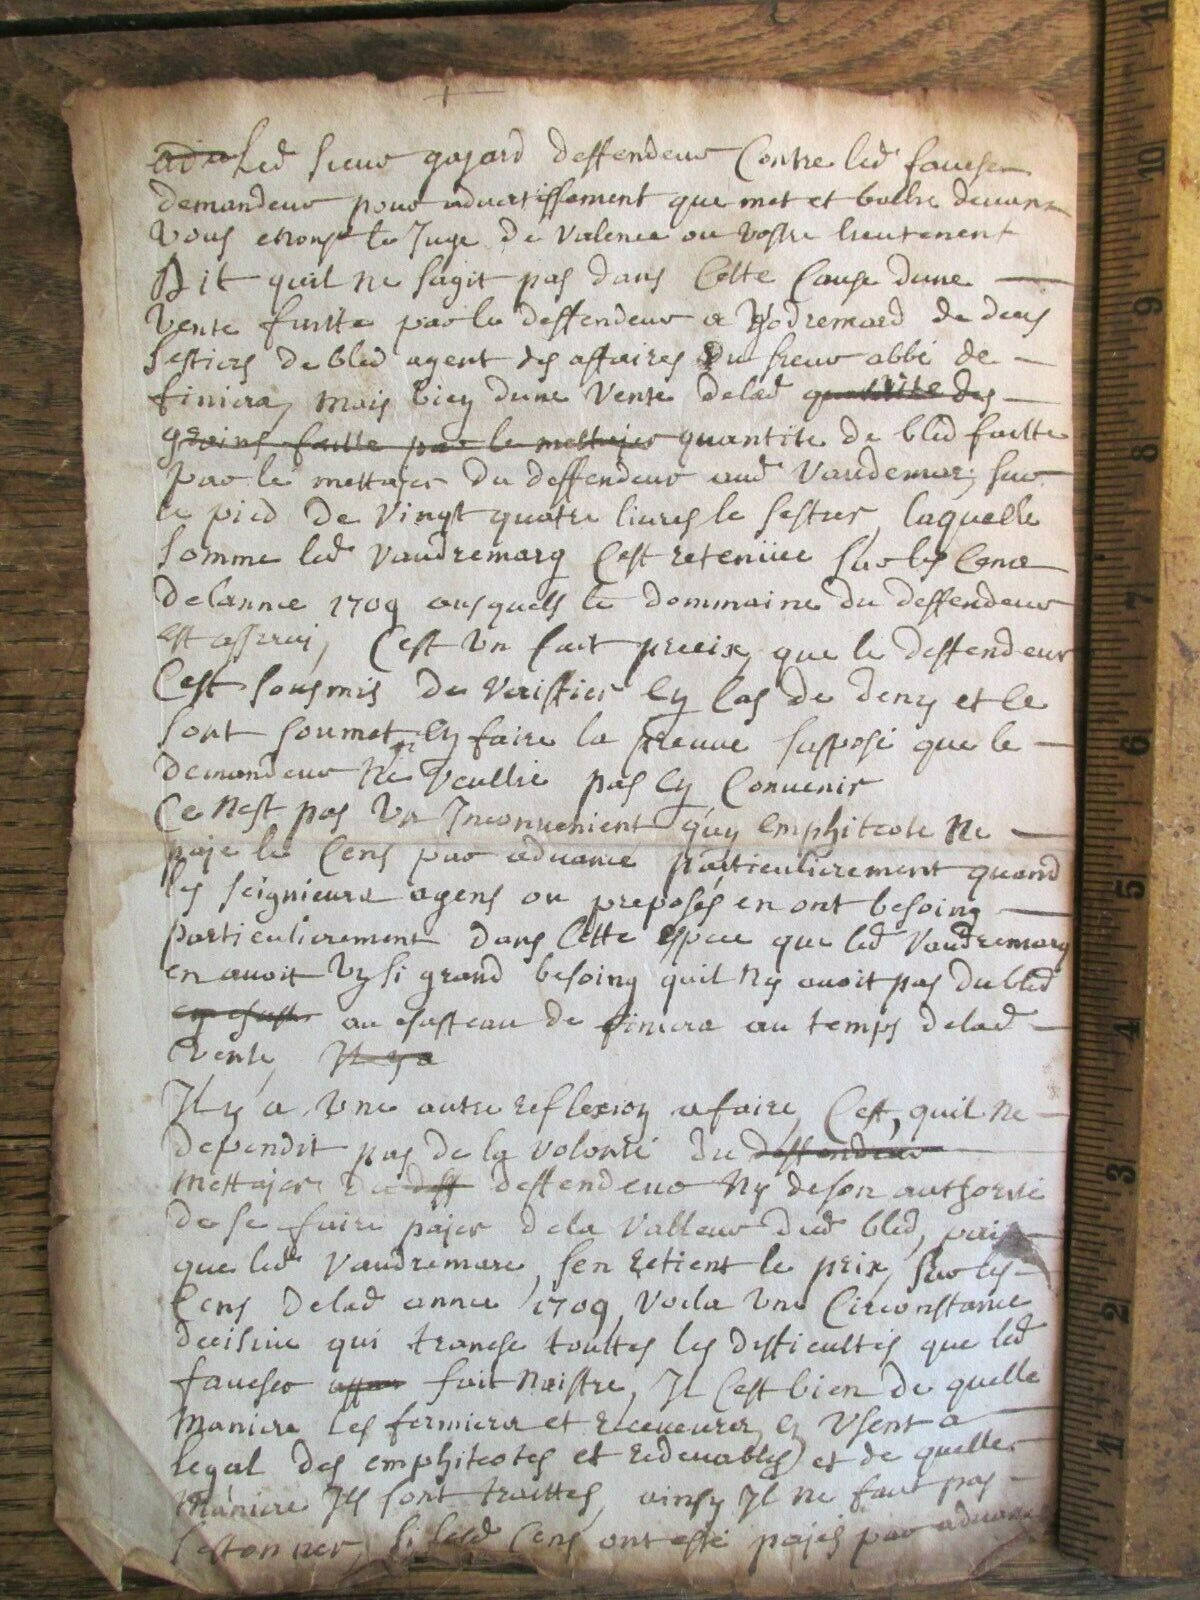 Led sieur gajard deffendeur Contre led faucher
demandeur pour advertissement que met et bailhe devant
vous le Juge de Valence ou vostre lieutenent
Dit quil ne sagit pas dans Cette Cause dune
vente faitte par le deffendeur a Vodremard de deux
sestiers de bled agent des affaires du sieur abbé de
finiera, mais bien dune vente delad quantite des
grains faitte par le mettajer quantite de bled faitte
par le mettajer du deffendeur aud Vaudemar, sur
le pied de vingt quatre livres le sestier, laquelle
somme led Vaudremarq Cest retenüe sur les Cens
delannee 1709 ausquels le dommaine du deffendeur
est asservi, Cest un fait precix, que le deffendeur
Cest sousmis de veriffier en Cas de deny et se
sont soumet en faire la preuve supposé que le
demandeur ne veullie pas en Convenir
Ce nest pas un Inconvenient quun emphiteote ne
paje le Cens par advance particulierement quand
les seignieurs agens ou preposés en ont besoing
particulierement dans Cette espece que led Vaudremarq
en avoit un si grand besoing quil ny avoit pas du bled
au chasteau de finiera au temps delad
vente Il y a
Il y a une autre reflexion a faire, Cest, quil ne
dependit pas de la volonté du deffendeur
mettajer du deff deffendeur ny de son authorité
de se faire pajer dela valleur dud bled,
que led Vaudremare, sen retient le prix, sur les
Cens delad annee 1709, voila une Circonstance
decisive qui tranche touttes les difficultés que led
faucher fait naistre, Il Cest bien de quelle
maniere les fermiers et receveurs en usent a
legal des emphiteotes et redevables, et de quelle
maniere Ils sont traittés, ainsy Il ne faut pas
sestonner, si lesd Cens ont esté pajés par advance